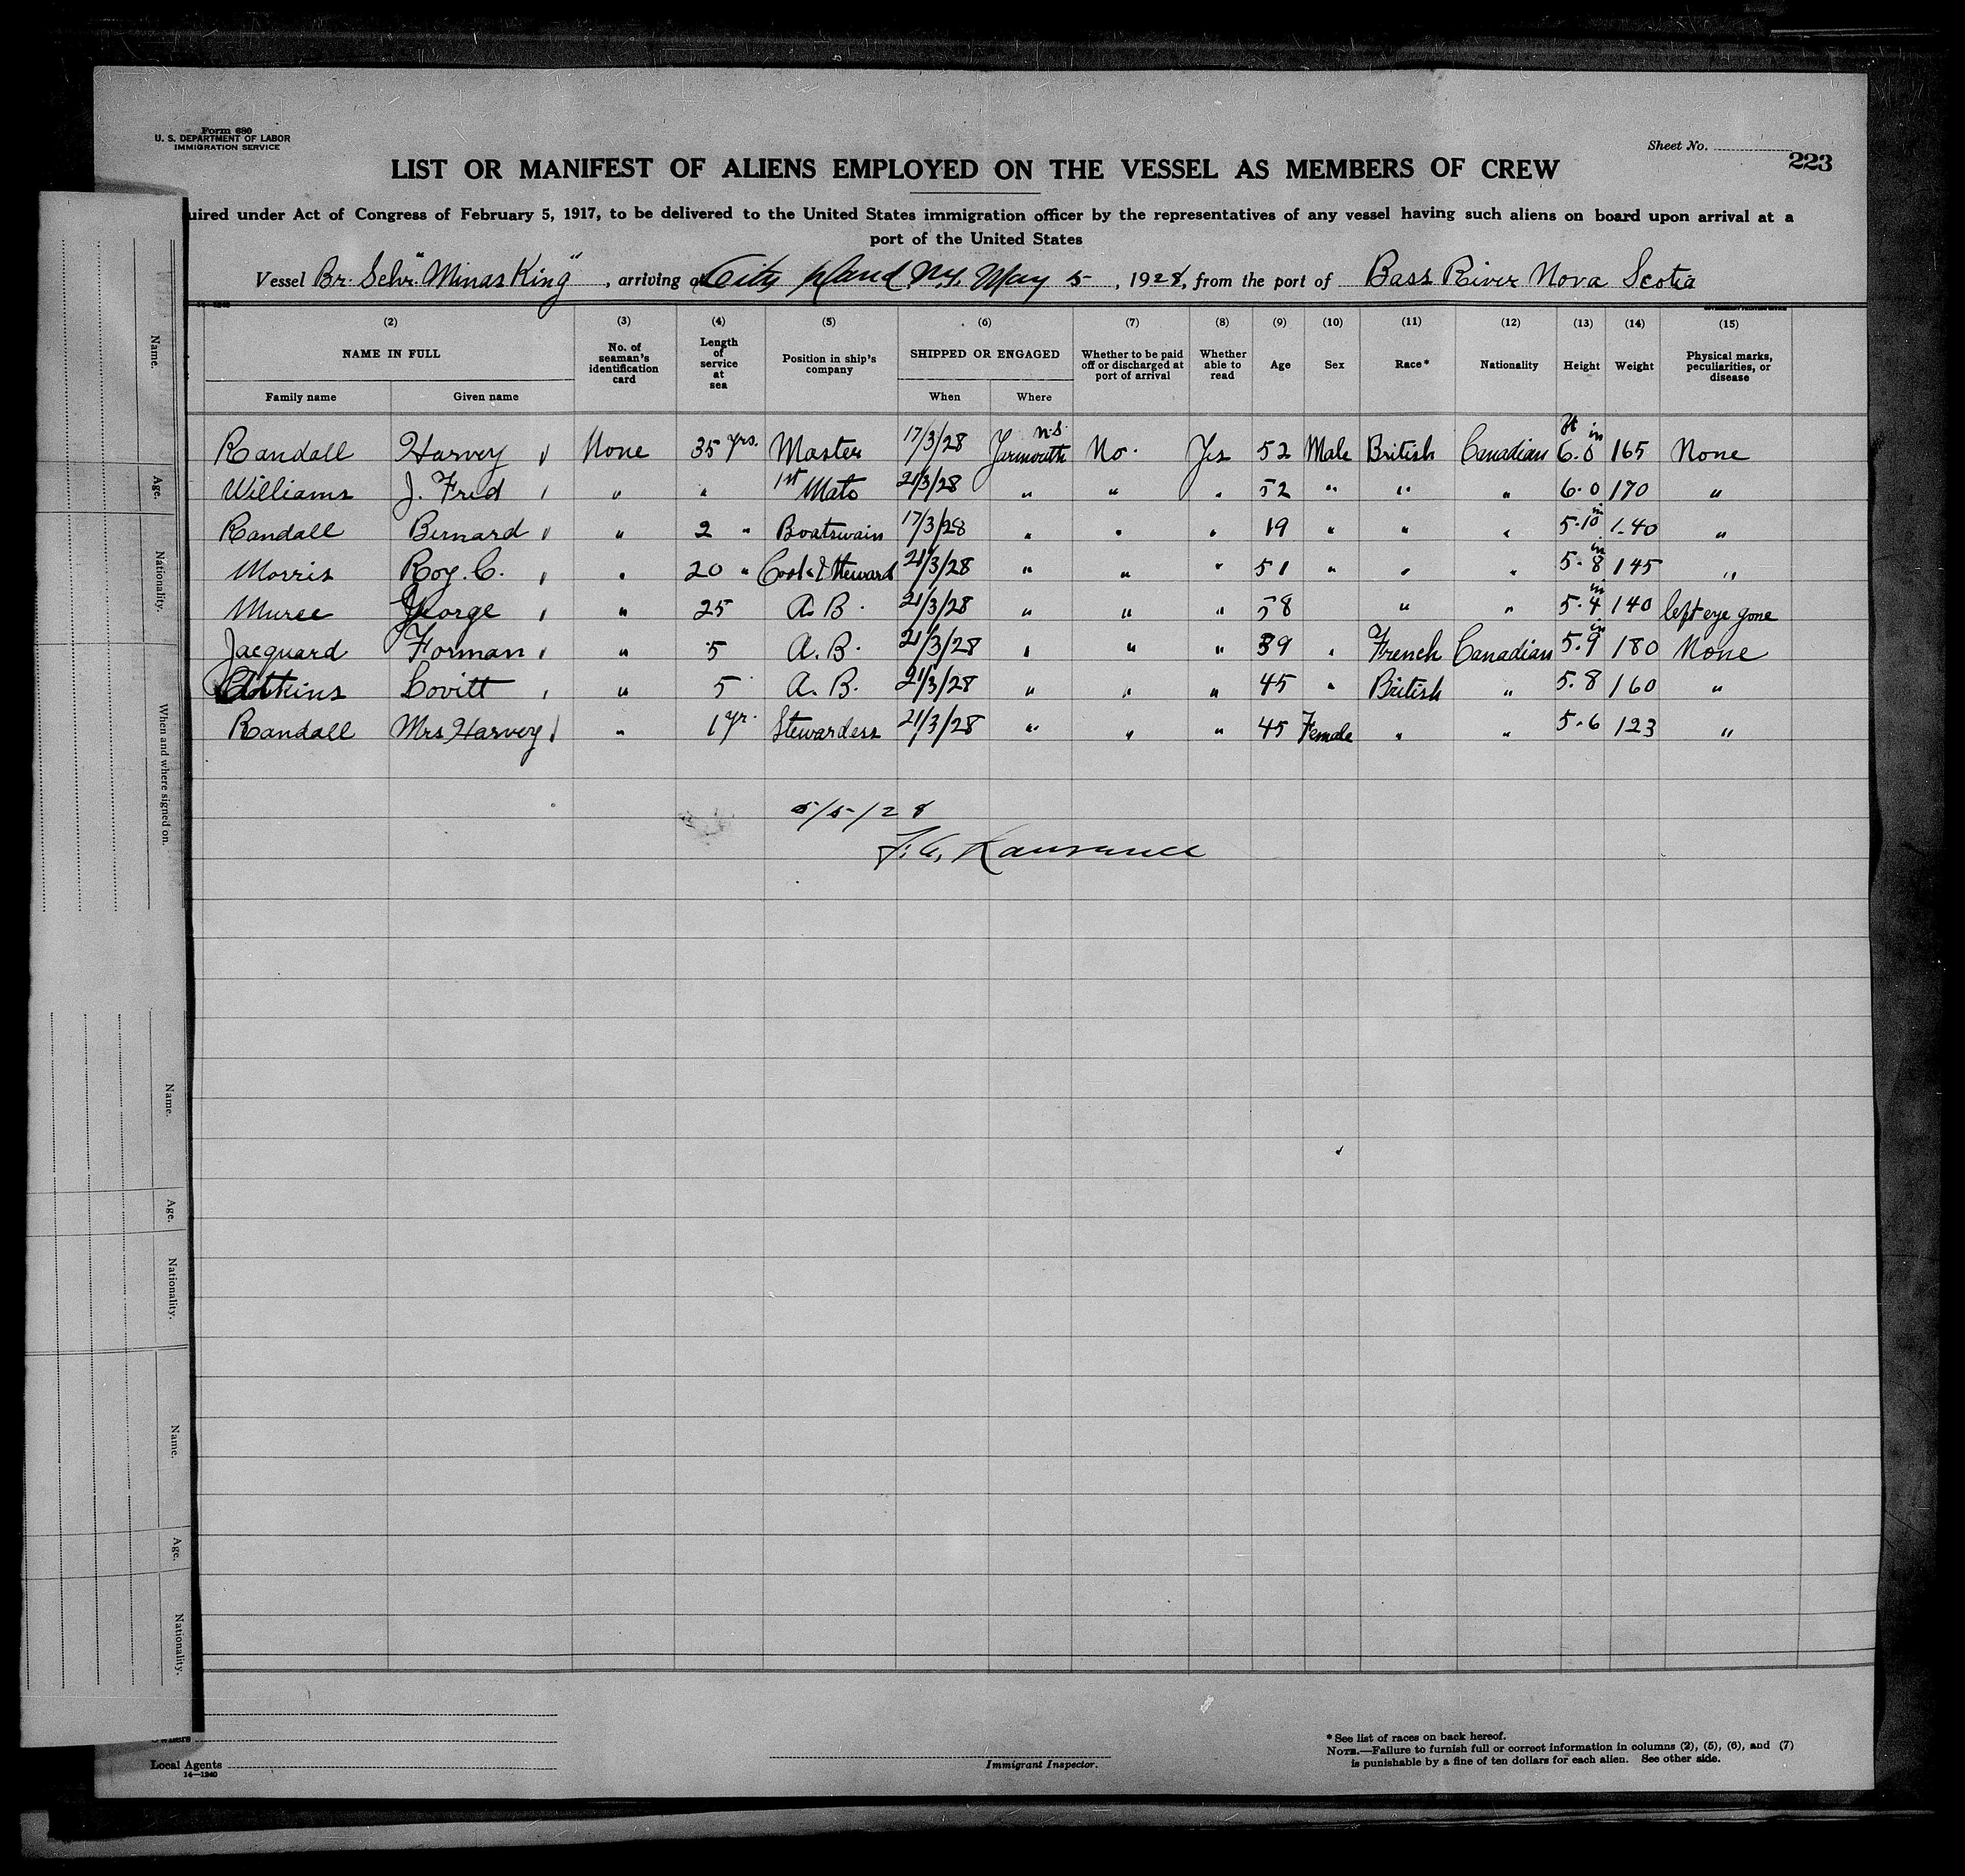 Form 680
U. S. DEPARTMENT OF LABOR
IMMIGRATION SERVICE
Sheet No.
223
LIST OR MANIFEST OF ALIENS EMPLOYED ON THE VESSEL AS MEMBERS OF CREW
uired under Act of Congress of February 5, 1917, to be delivered to the United States immigration officer by the representatives of any vessel having such aliens on board upon arrival at a
port of the United States
Vessel Br. Schr. "Minas King", arriving at City Island N.Y. May 5, 1928, from the port of Bass River Nova Scotia
(2) (3) (4) (5) (6) (7) (8) (9) (10) (11) (12) (13) (14) (15)
NAME IN FULL No. of seaman's identification card Length of service at sea Position in ship's company SHIPPED OR ENGAGED Whether to be paid off or discharged at port of arrival Whether able to read Age Sex Race* Nationality Height Weight Physical marks, peculiarities, or disease
Family name Given name When Where
Randall Harvey None 35 yrs. Master 17/3/28 Yarmouth N.S. No. Yes 52 Male British Canadian ft in 6.0 165 None
Williams J. Fred " " 1st Mate 21/3/28 " " " 52 " " " 6.0 170 "
Randall Bernard " 2 " Boatswain 17/3/28 " " " 19 " " " 5.10 in 140 "
Morris Roy. C. " 20 " Cook & Steward 21/3/28 " " " 51 " " " 5.8 in 145 "
Muree George " 25 A.B. 21/3/28 " " " 58 " " 5.4 in 140 left eye gone
Jacquard Forman " 5 A.B. 21/3/28 " " " 39 " French Canadian 5.9 in 180 None
Covitt " 5 A.B. 21/3/28 " " " 45 " British " 5.8 160 "
Randall Mrs Harvey " 1 yr. Stewardess 21/3/28 " " " 45 Female " " 5.6 123 "
5/5/28
Name.
Age.
Nationality.
When and where signed on.
Name.
Age.
Nationality.
Name.
Age.
Nationality.
Owners
Local Agents
14—1240
Immigrant Inspector.
* See list of races on back hereof.
NOTE.—Failure to furnish full or correct information in columns (2), (5), (6), and (7)
is punishable by a fine of ten dollars for each alien. See other side.